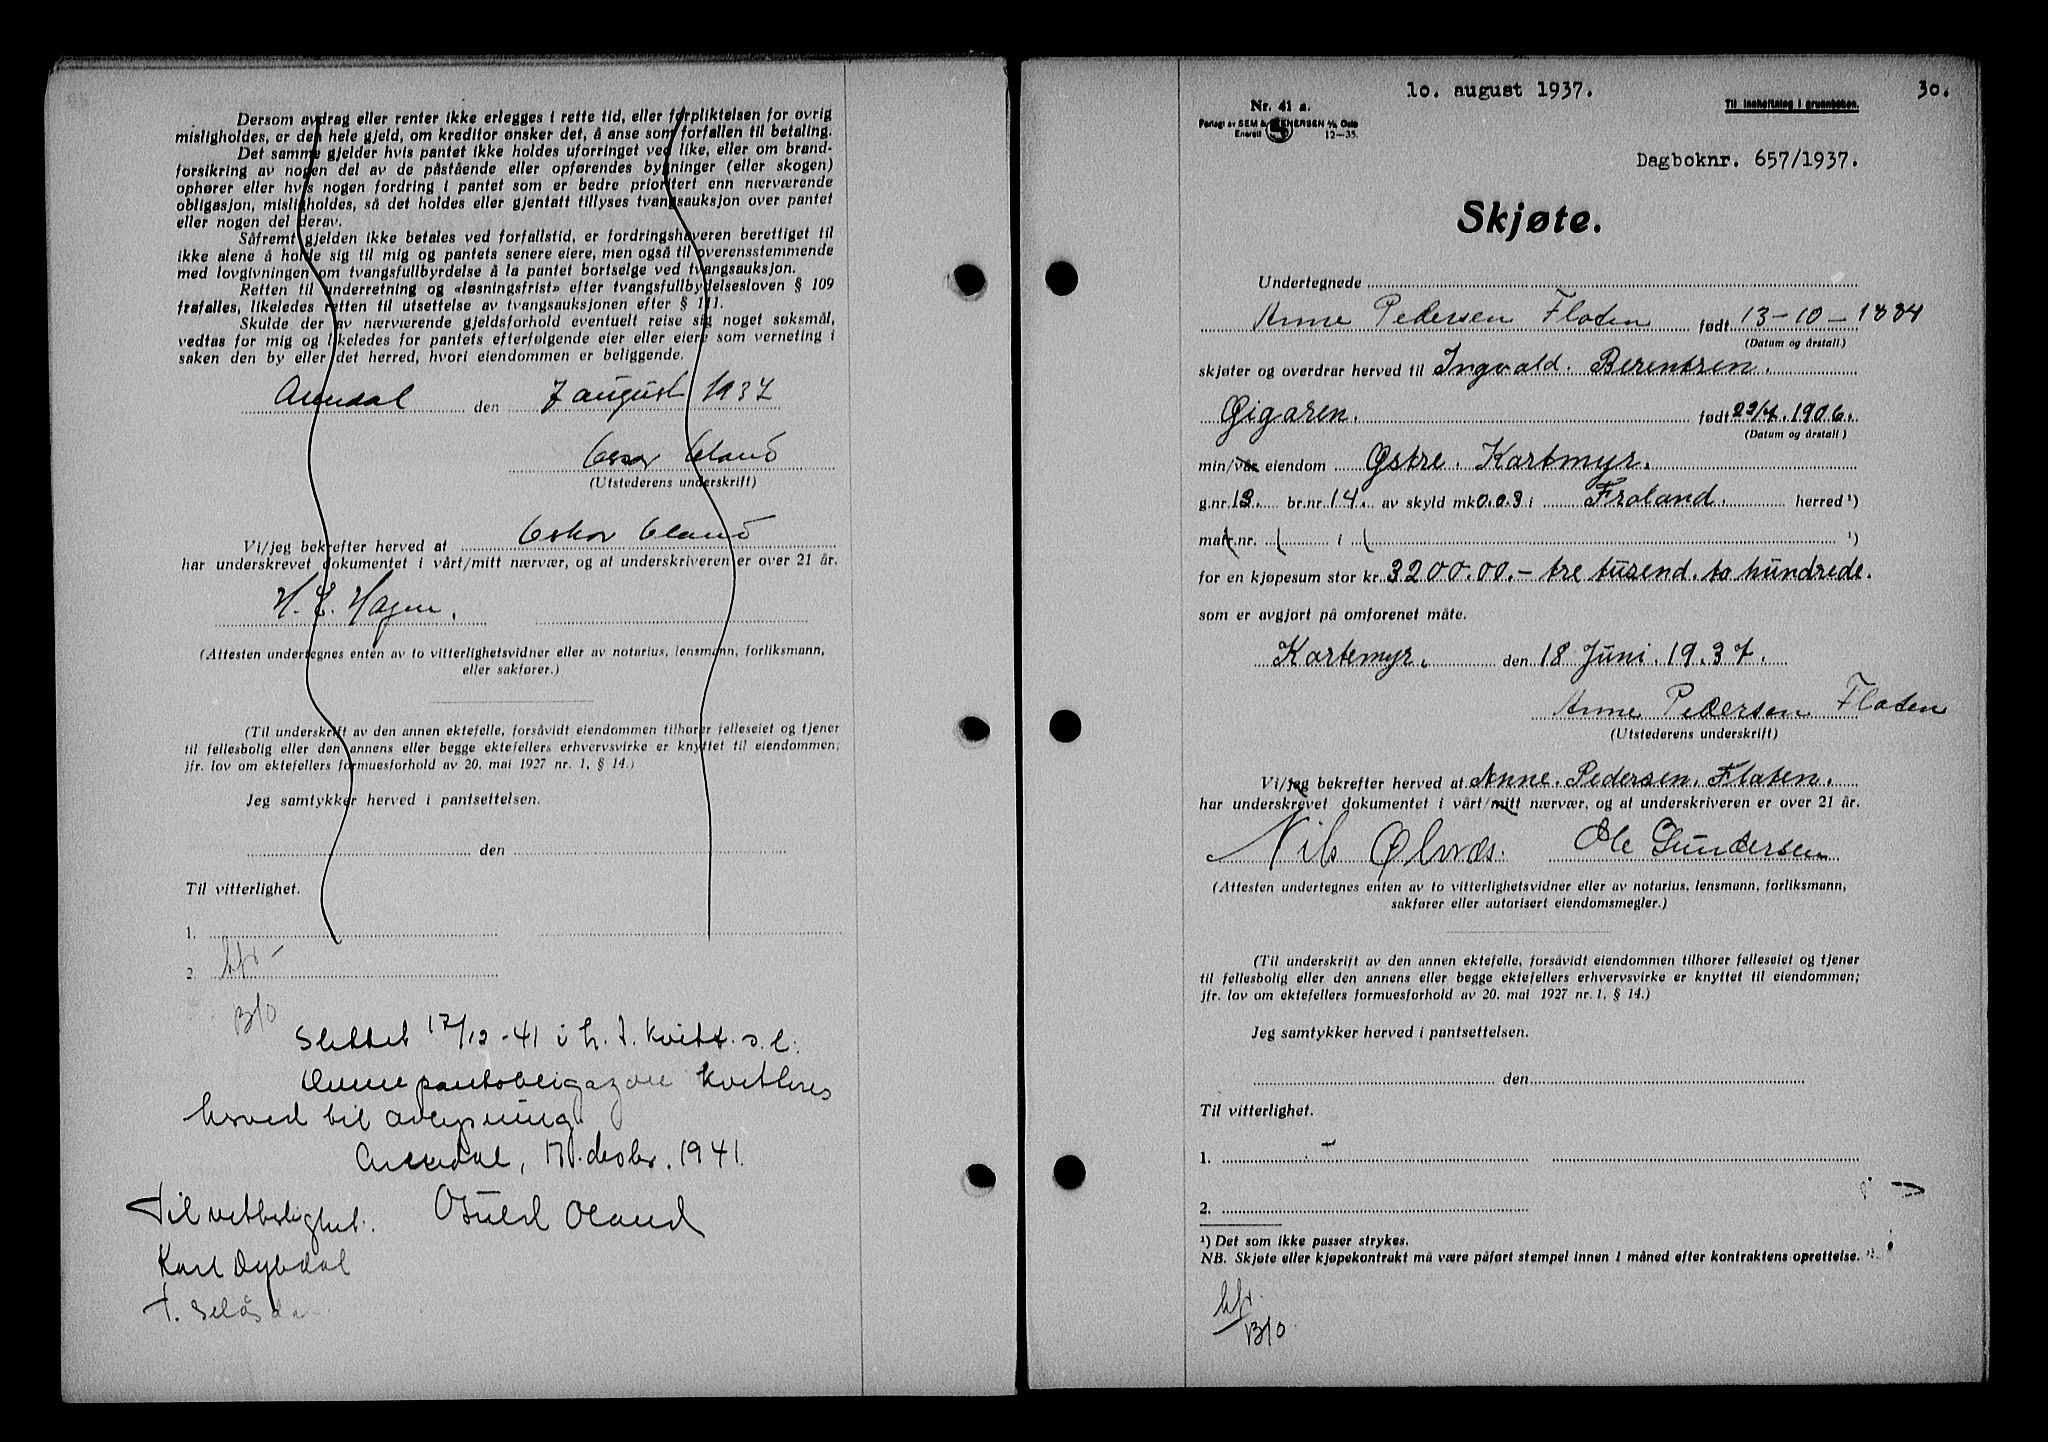 Dersom avdrag eller renter ikke erlegges i rette tid, eller forpliktelsen for øvrig
misligholdes, er den hele gjeld, om kreditor ønsker det, å anse som forfallen til betaling.
Det samme gjelder hvis pantet ikke holdes uforringet ved like, eller om brand-
forsikring av nogen del av de påstående eller opførendes bygninger (eller skogen)
ophører eller hvis nogen fordring i pantet som er bedre prioritert enn nærværende
obligasjon, misligholdes, så det holdes eller gjentatt tillyses tvangsauksjon over pantet
eller nogen del derav.
Såfremt gjelden ikke betales ved forfallstid, er fordringshaveren berettiget til
ikke alene å holde sig til mig og pantets senere eiere, men også til overensstemmende
med lovgivningen om tvangsfullbyrdelse å la pantet bortselge ved tvangsauksjon.
Retten til underretning og «løsningsfrist» efter tvangsfullbyrdelsesloven § 109
frafalles, likeledes retten til utsettelse av tvangsauksjonen efter § 111.
Skulde der av nærværende gjeldsforhold eventuelt reise sig noget søksmål,
vedtas for mig og likeledes for pantets efterfølgende eier eller eiere som verneting i
saken den by eller det herred, hvori eiendommen er beliggende.
Arendal den 7 august 1937
Oskar Oland
(Utstederens underskrift)
Vi/jeg bekrefter herved at Oskar Oland
har underskrevet dokumentet i vårt/mitt nærvær, og at underskriveren er over 21 år.
H. E. Hagen.
(Attesten undertegnes enten av to vitterlighetsvidner eller av notarius, lensmann, forliksmann,
eller sakfører.)
(Til underskrift av den annen ektefelle, forsåvidt eiendommen tilhører felleseiet og tjener
til fellesbolig eller den annens eller begge ektefellers erhvervsvirke er knyttet til eiendommen;
jfr. lov om ektefellers formuesforhold av 20. mai 1927 nr. 1, § 14.)
Jeg samtykker herved i pantsettelsen.
den
Til vitterlighet.
1.
2.
Slettet 17/12-41 i h. t. kvitt. s.l.
Denne pantobligasjon kvitteres
herved til avlysning.
Arendal, 17. desbr. 1941.
Til vitterlighet. Oland
Karl Dybdal
10. august 1937.
30.
Nr. 41 a.
Til innheftning i grunnboken.
Forlagt av SEM & STENERSEN A/S Oslo
Enerett 12-35.
Dagboknr. 657/1937.
Skjøte.
Undertegnede
Anne Pedersen Floten født 13-10-1884
(Datum og årstall.)
skjøter og overdrar herved til Ingvald. Berentsen.
Gigaren. født 23/7.1906.
(Datum og årstall)
min/vår eiendom Østre. Kartmyr.
g.nr. 13. br.nr. 14. av skyld mk 0.03 i Froland. herred ¹)
matr.nr. i ¹)
for en kjøpesum stor kr. 3200.00.- tre tusend. to hundrede.
som er avgjort på omforenet måte.
Kartemyr, den 18 Juni. 1937.
Anne Pedersen Floten
(Utstederens underskrift)
Vi/jeg bekrefter herved at Anne. Pedersen. Flaten.
har underskrevet dokumentet i vårt/mitt nærvær, og at underskriveren er over 21 år.
Nils Ølnes. Ole Gundersen
(Attesten undertegnes enten av to vitterlighetsvidner eller av notarius, lensmann, forliksmann,
sakfører eller autorisert eiendomsmegler.)
(Til underskrift av den annen ektefelle, forsåvidt eiendommen tilhører felleseiet og tjener
til fellesbolig eller den annens eller begge ektefellers erhvervsvirke er knyttet til eiendommen;
jfr. lov om ektefellers formuesforhold av 20. mai 1927 nr. 1, § 14.)
Jeg samtykker herved i pantsettelsen.
den
Til vitterlighet.
1.
2.
¹) Det som ikke passer strykes.
NB. Skjøte eller kjøpekontrakt må være påført stempel innen 1 måned efter kontraktens oprettelse.